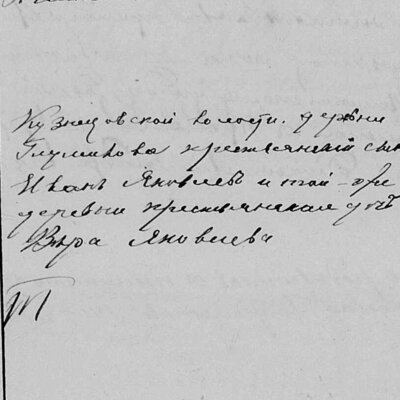 Кузнецовской волости, деревни
Глумикова крестьянскій сынъ
Иванъ Яковлевъ и той-же
деревни крестьянская дочь
Вѣра Яковлева